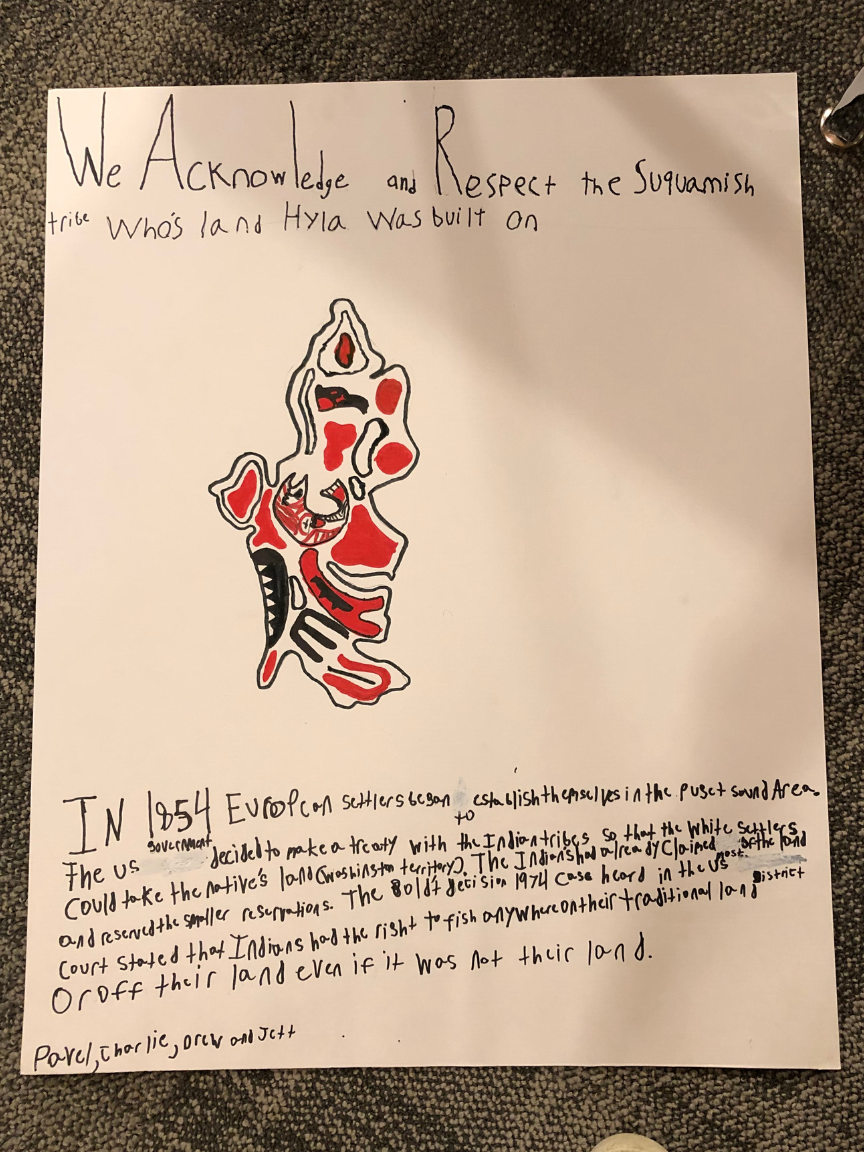 We Acknowledge and Respect the Suquamish
tribe Who's land Hyla was built on
In 1854 European settlers began to establish themselves in the puget sound Area.
The US government decided to make a treaty with the Indian tribes so that the white settlers
Could take the native's land (washington territory). The Indians had already claimed most of the land
and reserved the smaller reservations. The Boldt decision 1974 case heard in the US District
Court stated that Indians had the right to fish anywhere on their traditional land
Or off their land even if it was not their land.
Pavel, Charlie, Drew and Jett